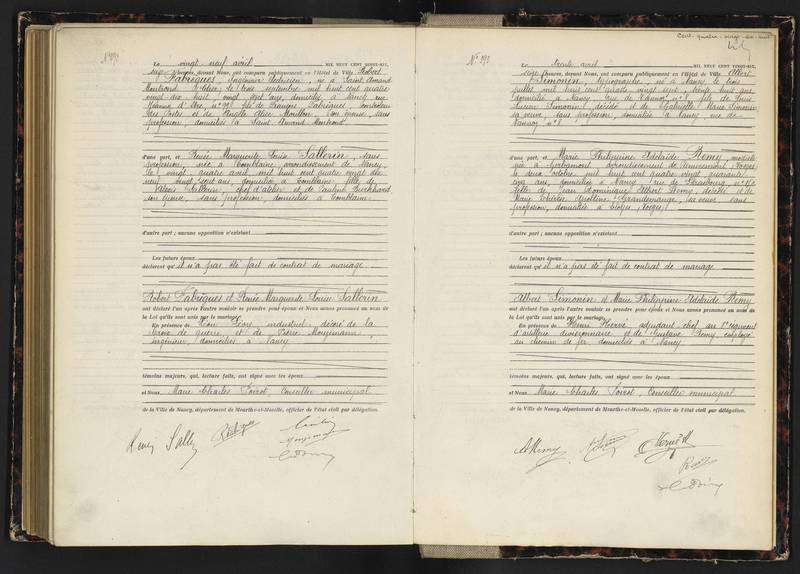 Le vingt neuf avril MIL NEUF CENT VINGT-SIX,
seize heures, devant Nous, ont comparu publiquement en l'Hôtel de Ville Robert
Fabrègues, Ingénieur électricien, né à Saint Amand
Montrond (Cher), le trois septembre mil huit cent quatre
vingt dix huit, vingt sept ans, domicilié à Nancy, rue
Jeanne d'Arc, n° fils de François Fabrègues, contrôleur
des Postes et de Angèle Alice Moullon, son épouse, sans
profession, domiciliés à Saint Amand Montrond
d'une part, et Renée Marguerite Louise Sallerin, sans
profession, née à Tomblaine, arrondissement de Nancy,
le vingt quatre avril mil huit cent quatre vingt dix
neuf, vingt sept ans, domiciliée à Tomblaine, fille de
Sallerin, chef d'atelier et de Pauline Burkhard,
son épouse, sans profession, domiciliés à Tomblaine
d'autre part ; aucune opposition n'existant
Les futurs époux
déclarent qu'il n'a pas été fait de contrat de mariage
Robert Fabrègues et Renée Marguerite Louise Sallerin
ont déclaré l'un après l'autre vouloir se prendre pour époux et Nous avons prononcé au nom de
la Loi qu'ils sont unis par le mariage.
En présence de Léon Lévy, industriel, décoré de la
croix de guerre, et de Pierre
ingénieur, domiciliés à Nancy
témoins majeurs, qui, lecture faite, ont signé avec les époux
et Nous, Marie Charles Boisot, Conseiller municipal
de la Ville de Nancy, département de Meurthe-et-Moselle, officier de l'état civil par délégation.
Le trente avril MIL NEUF CENT VINGT-SIX,
seize heures, devant Nous, ont comparu publiquement en l'Hôtel de Ville Albert
Simonin, typographe, né à Nancy, le trois
juillet mil huit cent quatre vingt sept, trente huit ans,
domicilié à Nancy, rue de Vannoz n° 8, fils de Louis
Lucien Simonin, décédé et de Gabrielle Marie
sa veuve, sans profession, domiciliée à Nancy, rue de
Vannoz n° 8
d'une part, et Marie Philippine Adélaïde Remy,
née à Gerbamont, arrondissement de Remiremont, Vosges,
le deux octobre mil huit cent quatre vingt
ans, domiciliée à Nancy, rue de Strasbourg, n°
fille de Jean Dominique Albert Remy, décédé et de
Marie Thérèse Apolline Grandemange, sa veuve, sans
profession, domiciliée à (Vosges)
d'autre part ; aucune opposition n'existant
Les futurs époux
déclarent qu'il n'a pas été fait de contrat de mariage
Albert Simonin et Marie Philippine Adélaïde Remy
ont déclaré l'un après l'autre vouloir se prendre pour époux et Nous avons prononcé au nom de
la Loi qu'ils sont unis par le mariage.
En présence de Henri Hervé, adjudant chef au régiment
d'artillerie divisionnaire et de Gustave Remy, employé
au chemin de fer, domiciliés à Nancy
témoins majeurs, qui, lecture faite, ont signé avec les époux
et Nous, Marie Charles Boisot, Conseiller municipal
de la Ville de Nancy, département de Meurthe-et-Moselle, officier de l'état civil par délégation.